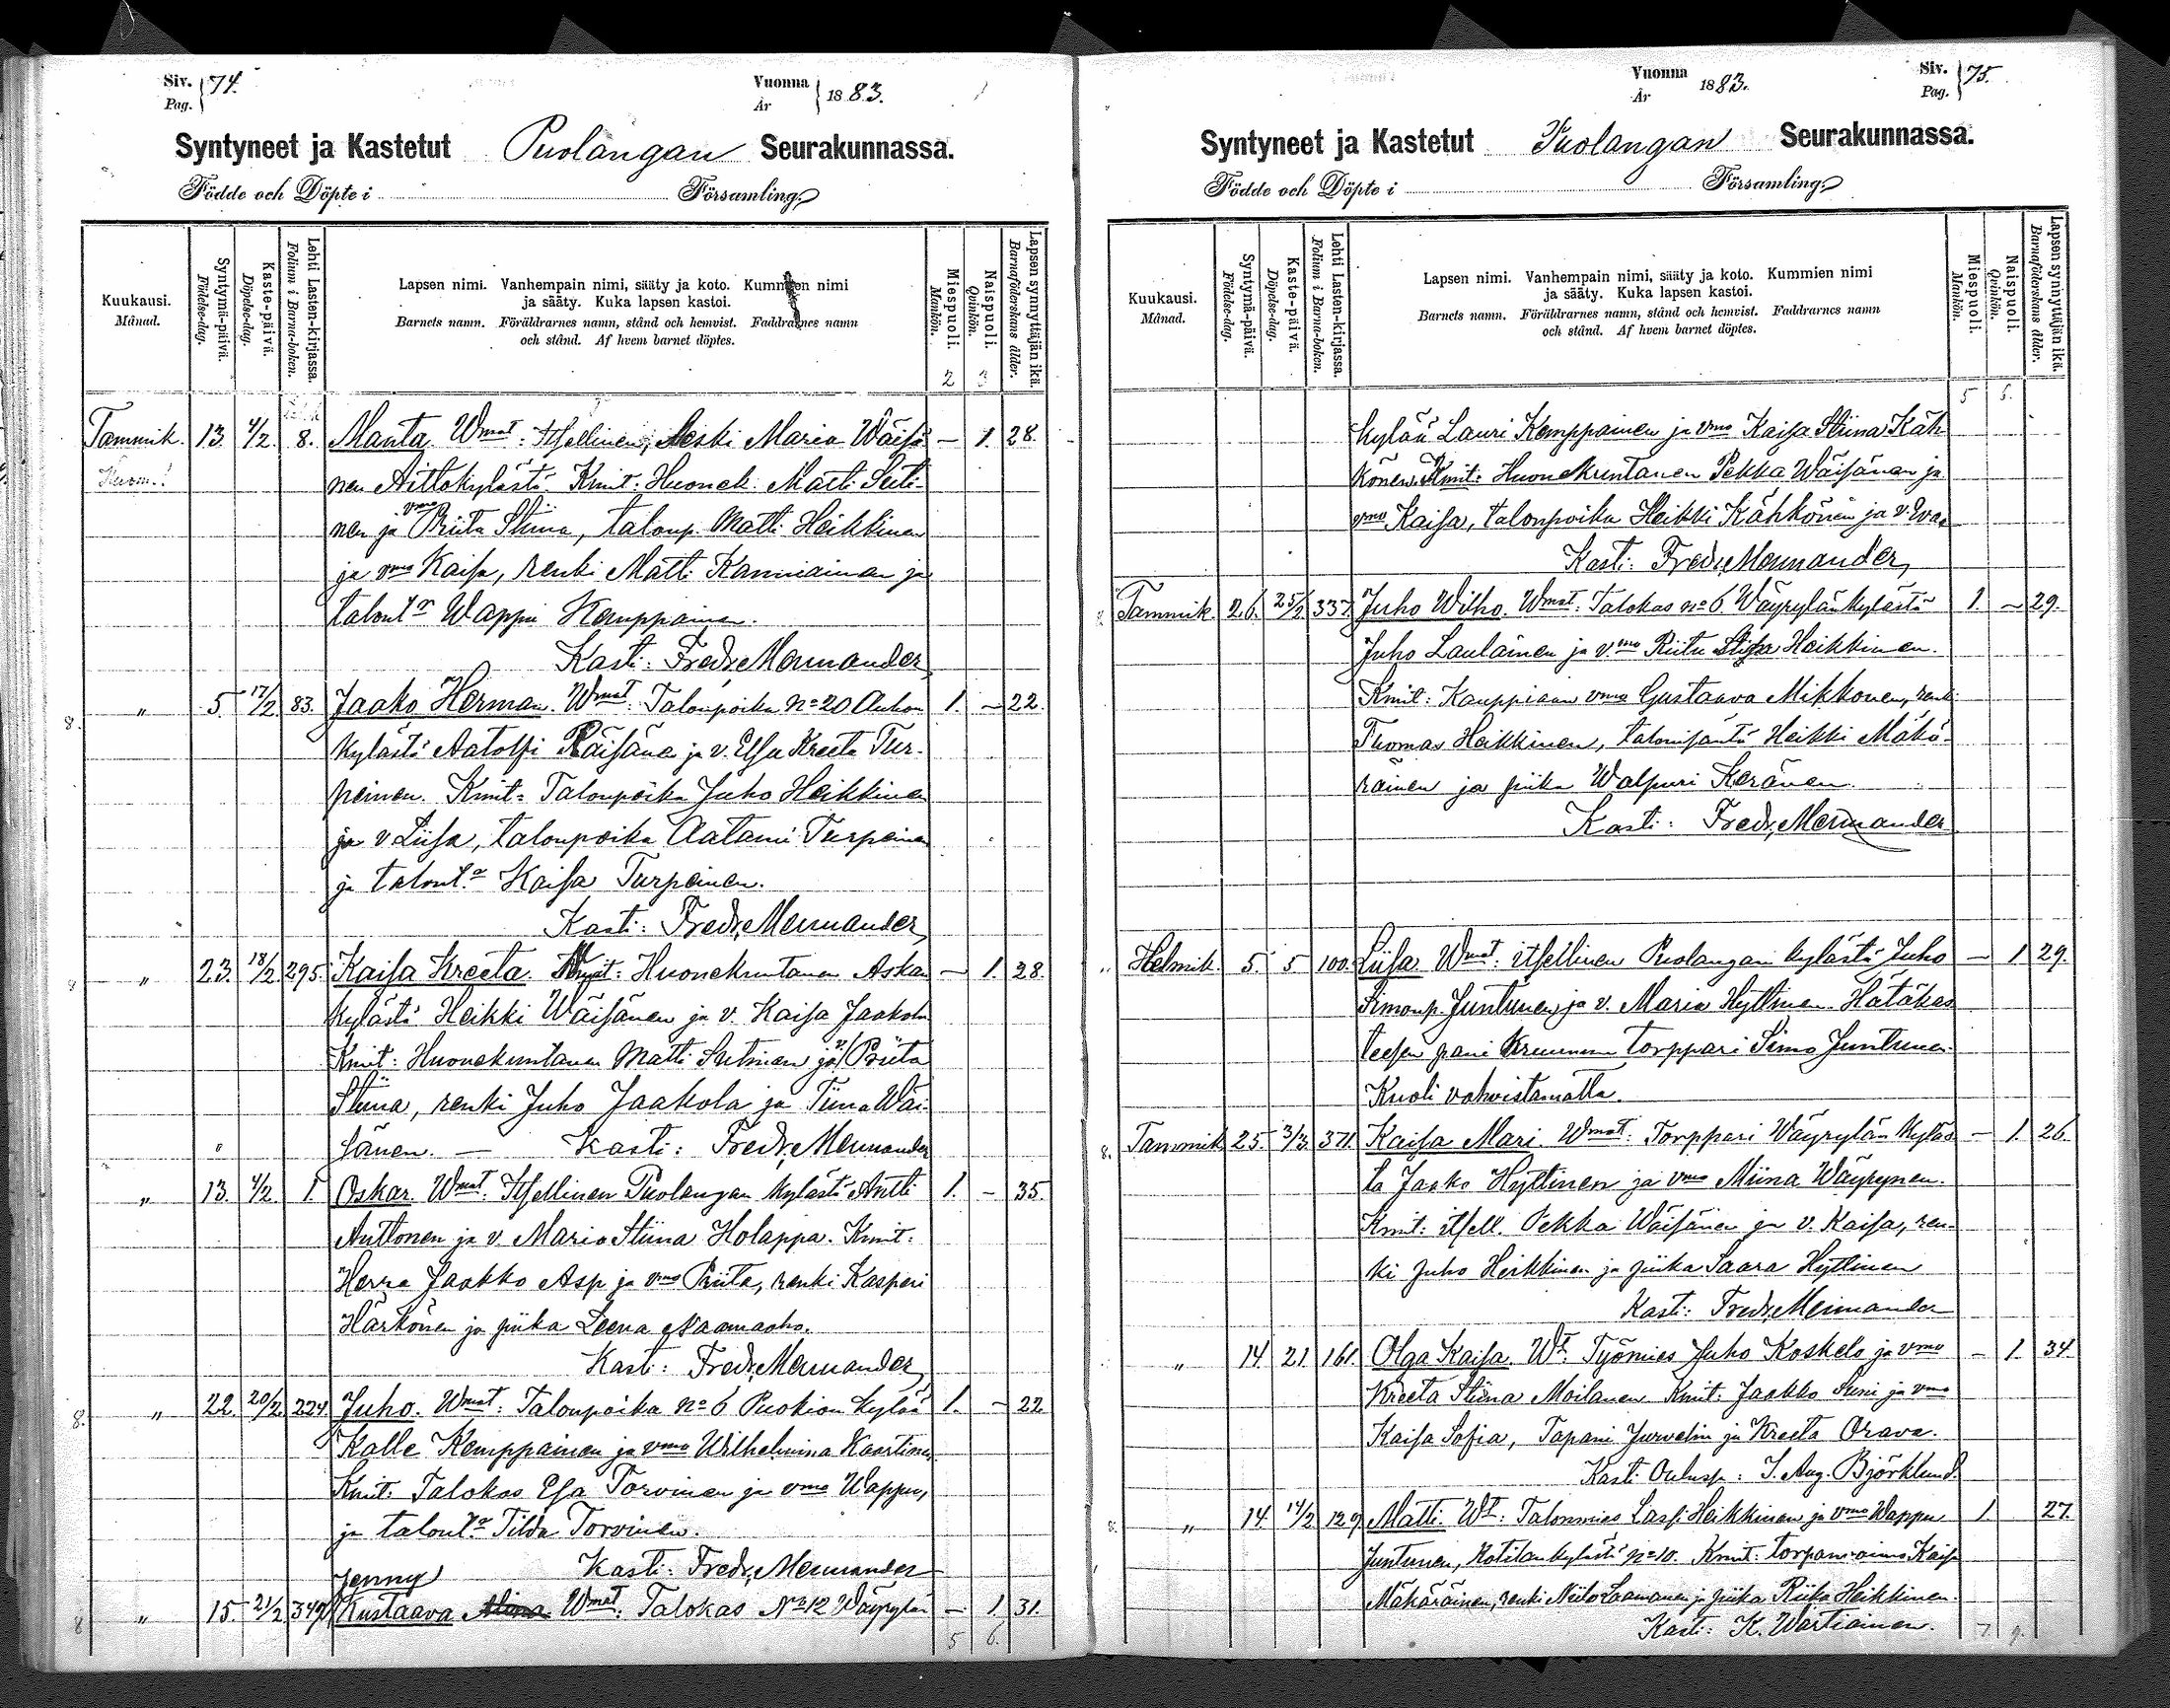 Siv. 74.
Pag.
Vuonna 1883.
År
Syntyneet ja Kastetut Puolangan Seurakunnassa.
Födde och Döpte i Församling.
Kuukausi. Månad.
Syntymä-päivä. Födelse-dag.
Kaste-päivä. Döpelse-dag.
Lehti Lasten-kirjassa. Folium i Barna-boken.
Lapsen nimi. Vanhempain nimi, sääty ja koto. Kummien nimi
ja sääty. Kuka lapsen kastoi.
Barnets namn. Föräldrarnes namn, stånd och hemvist. Faddrarnes namn
och stånd. Af hvem barnet döptes.
Miespuoli. Mankön.
Naispuoli. Qvinkön.
Lapsen synnyttäjän ikä. Barnaföderskans ålder.
2 3
Tammik. 13. 4/2. 8. Manta. Wmat: Itsellinen, leski Maria Wäisä- — 1. 28.
nen Aittokylästä. Kmit: Huonek. Matti Seiti-
nen ja vmo Briita Stiina, taloup. Matti Heikkinen
ja vmo Kaisa, renki Matti Kanniainen ja
talont:r Wappu Kemppainen.
Kasti: Fredr. Mennander
8. " 5. 17/2. 83. Jaako Herman. Wmat: Talonpoika No 20 Auhon 1. — 22.
kylästä Aatolfi Räisänen ja v. Elsa Kreeta Tur-
peinen. Kmit: Talonpoika Juho Heikkinen
ja v Liisa, talonpoika Aatami Turpeinen
ja talont:r Kaisa Turpeinen.
Kasti: Fredr. Mennander
8 " 23. 18/2. 295. Kaisa Kreeta. Wmat: Huonekuntanen Askan — 1. 28.
kylästä Heikki Wäisänen ja v. Kaisa Jaakola
Kmit: Huonekuntanen Matti Seitinen ja v. Briita
Stiina, renki Juho Jaakola ja Tiina Wäi-
sänen. — Kasti: Fredr. Mennander
" 13. 4/2. 1. Oskar. Wmat: Itsellinen Puolangan kylästä Antti 1. — 35.
Anttonen ja v. Maria Stiina Holappa. Kmit:
Herra Jaakko Asp ja vmo Briita, renki Kasperi
Härkönen ja piika Leena Naamaaho.
Kasti: Fredr. Mennander
8. " 22. 20/2. 224. Juho. Wmat: Talonpoika No 6 Puokion kylää 1. — 22.
Kalle Kemppainen ja vmo Wilhelmina Kaartinen
Kmit: Talokas Esa Torvinen ja vmo Wappu,
ja talont:r Tilda Torvinen.
Jenny Kasti: Fredr. Mennander
8 " 15. 21/2. 349. Kustaava Alina Wmat: Talokas No 12 Wäyrylän — 1. 31.
5 6.
Vuonna 1883.
År
Siv. 75.
Pag.
Syntyneet ja Kastetut Puolangan Seurakunnassa.
Födde och Döpte i Församling.
Kuukausi. Månad.
Syntymä-päivä. Födelse-dag.
Kaste-päivä. Döpelse-dag.
Lehti Lasten-kirjassa. Folium i Barna-boken.
Lapsen nimi. Vanhempain nimi, sääty ja koto. Kummien nimi
ja sääty. Kuka lapsen kastoi.
Barnets namn. Föräldrarnes namn, stånd och hemvist. Faddrarnes namn
och stånd. Af hvem barnet döptes.
Miespuoli. Mankön.
Naispuoli. Qvinkön.
Lapsen synnyttäjän ikä. Barnaföderskans ålder.
5 6.
kylää Lauri Kemppainen ja vmo Kaisa Stiina Käh-
könen. Kmit: Huonekuntanen Pekka Wäisänen ja
vmo Kaisa, talonpoika Heikki Kähkönen ja v. Eva.
Kasti: Fredr. Mennander,
Tammik. 26. 25/2 337. Juho Wilho. Wmat: Talokas no 6 Wäyrylänkylästä 1. — 29.
Juho Laulainen ja v.mo Riitu Liisa Heikkinen.
Kmit: Kauppiaan vmo Gustaava Mikkonen, renki
Thomas Heikkinen, talonisäntä Heikki Mäkä-
räinen ja piika Walpuri Keränen.
Kasti: Fredr. Mennander
" Helmik. 5. 5 100. Liisa Wmat: itsellinen Puolangan kylästä Juho — 1 29.
Simonp. Juntunen ja v. Maria Hyttinen. Hätäkas-
teesen pani torppari Simo Juntunen.
Kuoli vahvistamatta.
8. Tammik. 25. 3/3. 371. Kaisa Mari. Wmat: Torppari Wäyrylän kyläs- — 1. 26.
tä Jaako Hyttinen ja vmo Miina Wäyrynen.
Kmit: itsell. Pekka Wäisänen ja v. Kaisa, ren-
ki Juho Heikkinen ja piika Saara Hyttinen
Kasti: Fredr. Mennander
" 14. 21. 161. Olga Kaisa. Wt: Työmies Juho Koskelo ja vmo — 1. 34.
Kreeta Stiina Moilanen Kmit: Jaakko Suni ja vmo
Kaisa Sofia, Tapani Jurvelin ja Kreeta Orava.
Kasti Oulussa: J. Aug. Björklund.
8. " 14. 14/2 129. Matti. Wt: Talonmies Lassi Heikkinen ja vmo Wappu 1. 27.
Juntunen, Kotilankylästä No 10. Kmit: torpanvaimo Kaisa
Mäkäräinen, renki Niilo Laamanen ja piika Riika Heikkinen.
Kasti: K. Wartiainen. 7 9.